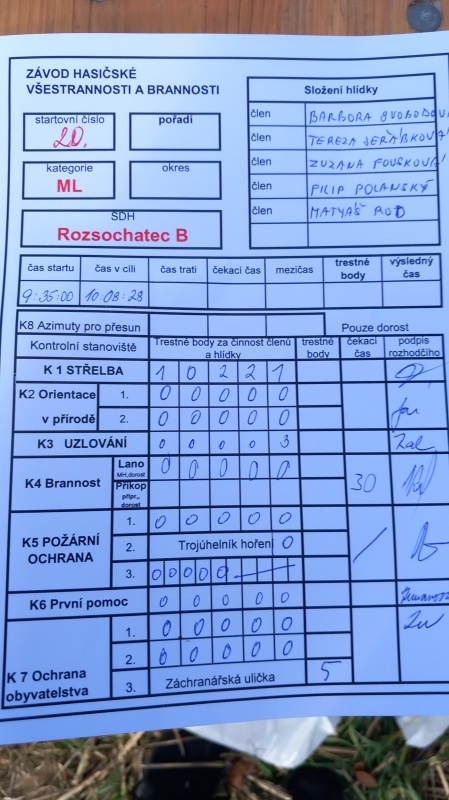 ZÁVOD HASIČSKÉ
VŠESTRANNOSTI A BRANNOSTI
startovní číslo
20.
pořadí
kategorie
ML
okres
SDH
Rozsochatec B
Složení hlídky
člen BARBORA SVOBODOVÁ
člen TEREZA JEŘÁBKOVÁ
člen ZUZANA FOUSKOVÁ
člen FILIP POLANSKÝ
člen MATYÁŠ ROD
čas startu čas v cíli čas trati čekací čas mezičas trestné body výsledný čas
9:35:00 10:08:28
K8 Azimuty pro přesun Pouze dorost
Kontrolní stanoviště Trestné body za činnost členů a hlídky trestné body čekací čas podpis rozhodčího
K 1 STŘELBA 1 0 2 2 1
K2 Orientace v přírodě
1. 0 0 0 0 0
2. 0 0 0 0 0
K3 UZLOVÁNÍ 0 0 0 0 3
K4 Brannost
Lano MH,dorost 0 0 0 0 0 30
Příkop přípr., dorost
K5 POŽÁRNÍ OCHRANA
1. 0 0 0 0 0 /
2. Trojúhelník hoření 0
3. 0 0 0 0 0
K6 První pomoc 0 0 0 0 0
K 7 Ochrana obyvatelstva
1. 0 0 0 0 0
2. 0 0 0 0 0
3. Záchranářská ulička 5